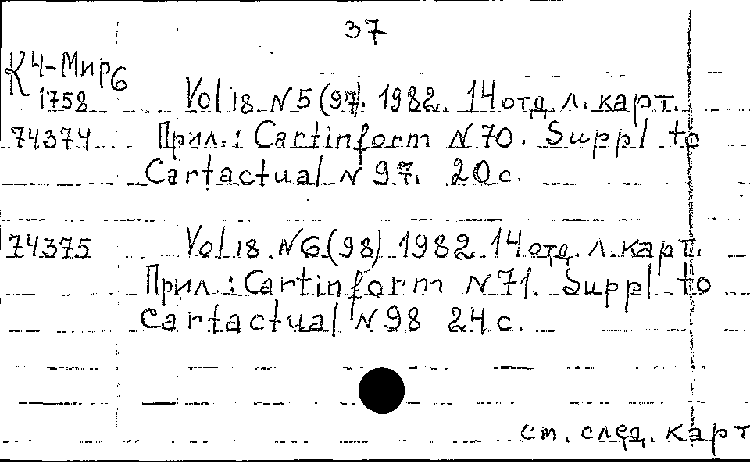 37
К4-Мир6
1758 Vol 18 N 5 (97). 1982. 14 отд. л. карт.
74374 Прил.: Cartinform N 70. Suppl to
Cartactual N 97. 20 с.
74375 Vol 18. N 6 (98) 1982 14 отд. л. карт.
Прил.: Cartinform N 71. Suppl to
Cartactual N 98 24 с.
см. след. карт